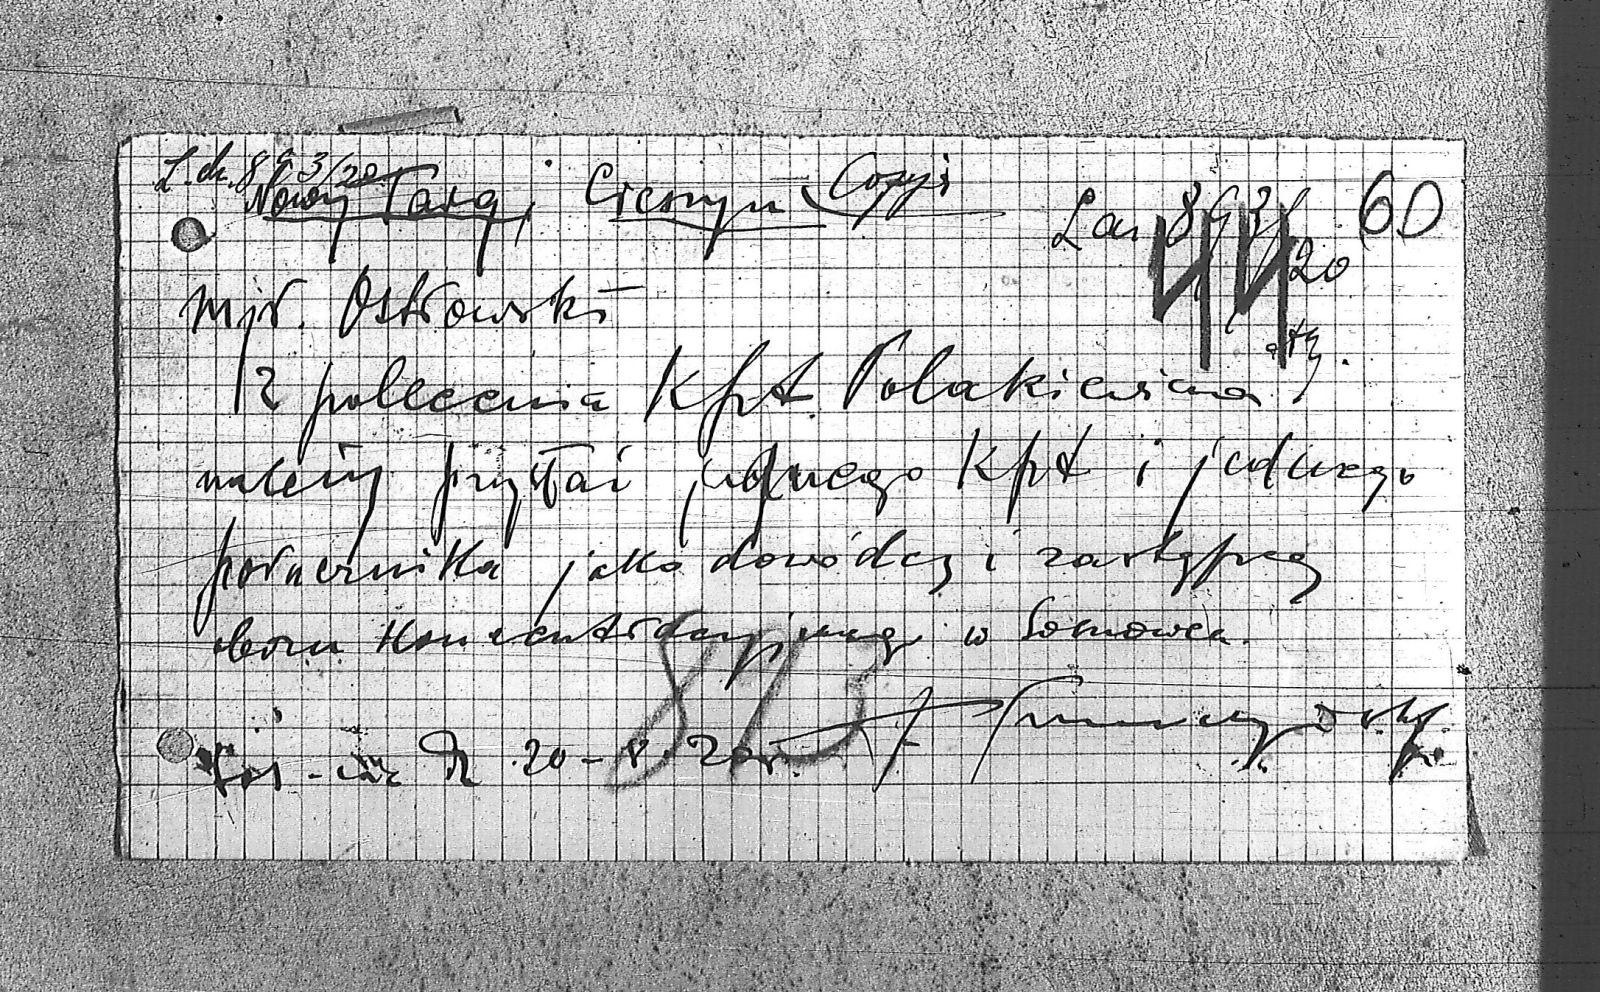 L. dz. 893/20
Nowy Targ, Cieszyn Copyś
L dz 893/20 60
44
Mjr. Ostrowski
Z polecenia Kpt. Polakiewicza
należy przysłać jednego Kpt i jednego
porucznika jako dowódcę i zastępcę
obozu Koncentracyjnego w
20-8
893